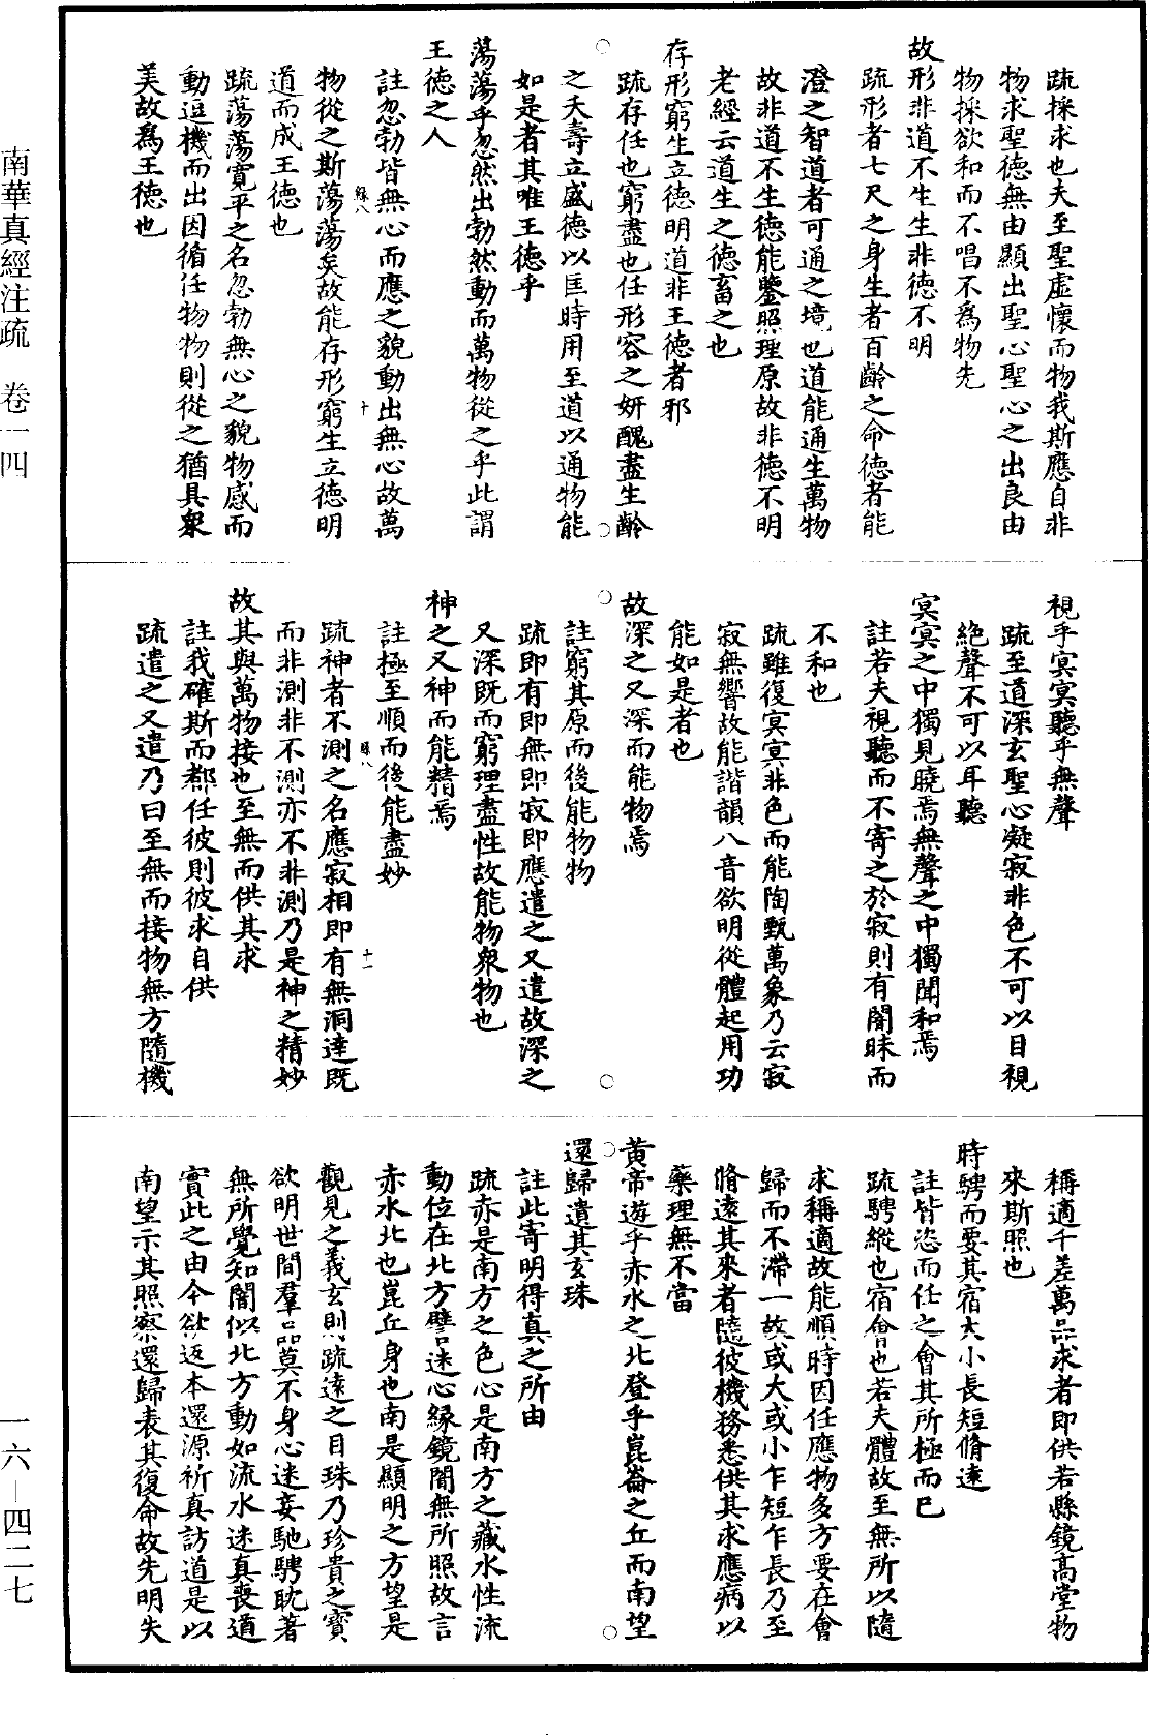 疏採求也夫至聖虛懷而物我斯應自非
物求聖德無由顯出聖心聖心之出良由
物採欲和而不唱不爲物先
故形非道不生生非德不明
疏形者七尺之身生者百齡之命德者能
澄之智道者可通之境也道能通生萬物
故非道不生德能鑒照理原故非德不明
老經云道生之德畜之也
存形窮生立德明道非王德者邪
疏存任也窮盡也任形容之妍醜盡生齡
之夭壽立盛德以匡時用至道以通物能
如是者其唯王德乎
蕩蕩乎忽然出勃然動而萬物從之乎此謂
王德之人
註忽勃皆無心而應之貌動出無心故萬
物從之斯蕩蕩矣故能存形窮生立德明
道而成王德也
疏蕩蕩寬平之名忽勃無心之貌物感而
動逗機而出因循任物物則從之猶具衆
美故爲王德也
視乎冥冥聽乎無聲
疏至道深玄聖心凝寂非色不可以目視
絶聲不可以耳聽
冥冥之中獨見曉焉無聲之中獨聞和焉
註若夫視聽而不寄之於寂則有闇昧而
不和也
疏雖復冥冥非色而能陶甄萬象乃云寂
寂無響故能諧韻八音欲明從體起用功
能如是者也
故深之又深而能物焉
註窮其原而後能物物
疏即有即無即寂即應遣之又遣故深之
又深既而窮理盡性故能物衆物也
神之又神而能精焉
註極至順而後能盡妙
疏神者不測之名應寂相即有無洞達既
而非測非不測亦不非測乃是神之精妙
故其與萬物接也至無而供其求
註我確斯而都任彼則彼求自供
疏遣之又遣乃曰至無而接物無方隨機
稱適千差萬品求者即供若縣鏡高堂物
來斯照也
時騁而要其宿大小長短脩遠
註皆恣而任之會其所極而已
疏騁縱也宿會也若夫體故至無所以隨
求稱適故能順時因任應物多方要在會
歸而不滯一故或大或小乍短乍長乃至
脩遠其來者隨彼機務悉供其求應病以
藥理無不當
黃帝遊乎赤水之北登乎崑崙之丘而南望
還歸遺其玄珠
註此寄明得真之所由
疏赤是南方之色心是南方之藏水性流
動位在北方譬迷心緣鏡闇無所照故言
赤水北也崑丘身也南是顯明之方望是
觀見之義玄則疏遠之目珠乃珍貴之寶
欲明世間羣品莫不身心迷妄馳騁耽著
無所覺知闇似北方動如流水迷真喪道
實此之由今欲返本還源祈真訪道是以
南望示其照察還歸表其復命故先明失
南華真經注疏 卷一四
一六－四二七